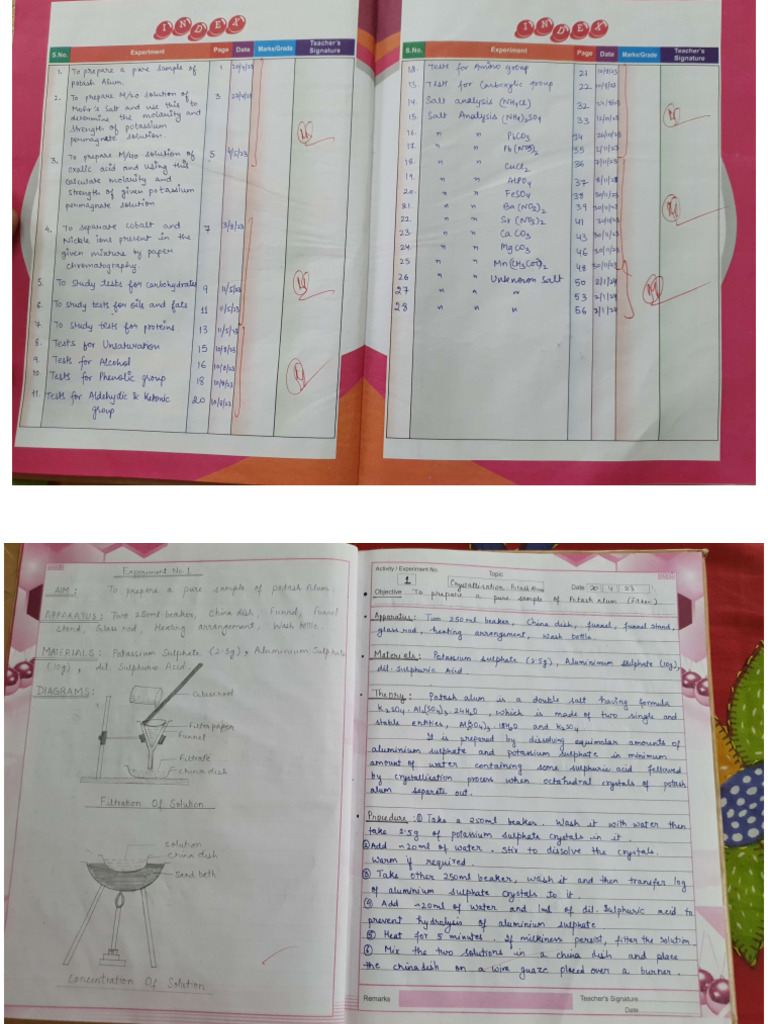 INDEX
S.No. Experiment Page Date Marks/Grade Teacher's Signature
1. To prepare a pure sample of 1
potash Alum.
2. To prepare M/20 solution of 3
Mohr's Salt and use this to
determine the molarity and
strength of potassium
permagnate solution.
3. To prepare M/20 solution of 5 4/5/23
oxalic acid and using this
calculate molarity and
strength of given potassium
permagnate solution
4. To separate cobalt and 7
Nickle ions present in the
given mixture by paper
chromatography.
5. To study tests for carbohydrates 9 11/5/23
6. To study tests for oils and fats 11 11/5/23
7. To study tests for proteins 13 11/5/23
8. Tests for Unsaturation 15 10/8/23
9. Tests for Alcohol 16 10/8/23
10. Tests for Phenolic group 18 10/8/23
11. Tests for Aldehydic & Ketonic 20 10/8/23
group
INDEX
S.No. Experiment Page Date Marks/Grade Teacher's Signature
12. Tests for Amino group 21 10/8/23
13. Test for Carboxylic group 22 10/8/23
14. Salt analysis (NH4Cl) 32
15. Salt Analysis (NH4)2SO4 33
16. " " PbCO3 34
17. " " Pb(NO3)2 35
18. " " CuCl2 36
19. " " AlPO4 37
20. " " FeSO4 38
21. " " Ba(NO3)2 39
22. " " Sr(NO3)2 41
23. " " CaCO3 43
24. " " MgCO3 46
25 " " Mn(CH3COO)2 48
26 " " Unknown Salt 50 2/1/24
27 " " " 53 2/1/24
28 " " " 56 2/1/24
Experiment No 1
AIM: To prepare a pure sample of Potash Alum.
APPARATUS: Two 250ml beaker, China dish, Funnel, Funnel
stand, Glass rod, Heating arrangement, Wash bottle.
MATERIALS: Potassium Sulphate (2.5g), Aluminium Sulphate
(10g), dil. Sulphuric Acid.
DIAGRAMS:
Glass rod
Filter paper
Funnel
Filtrate
China dish
Filtration Of Solution
solution
china dish
Sand bath
Concentration Of Solution
Activity / Experiment No. Topic
1 Crystallisation Potash Alum Date 20 4 23
Objective To prepare a pure sample of Potash alum
Apparatus: Two 250ml beaker, China dish, funnel, funnel stand,
glass rod, heating arrangement, wash bottle.
Materials: Potassium sulphate (2.5g), Aluminimum sulphate (10g),
dil. Sulphuric Acid.
Theory: Potash alum is a double salt having formula
K2SO4.Al2(SO4)3.24H2O, which is made of two single and
stable entities, Al2(SO4)3.18H2O and K2SO4
It is prepared by dissolving equimolar amounts of
aluminium sulphate and potassium sulphate in minimum
amount of water containing some sulphuric acid followed
by crystallisation process when octahedral crystals of potash
alum separate out.
Procedure: ① Take a 250ml beaker. Wash it with water then
take 2.5g of potassium sulphate crystals in it
② Add ~20ml of water. Stir to dissolve the crystals.
Warm if required.
③ Take other 250ml beaker, wash it and then transfer 10g
of aluminium sulphate crystals to it.
④ Add ~20ml of water and 1ml of dil. Sulphuric acid to
prevent hydrolysis of aluminium sulphate
⑤ Heat for 5 minutes. If milkiness persist, filter the solution
⑥ Mix the two solutions in a china dish and place
the china dish on a wire guaze placed over a burner.
Remarks Teacher's Signature
Date